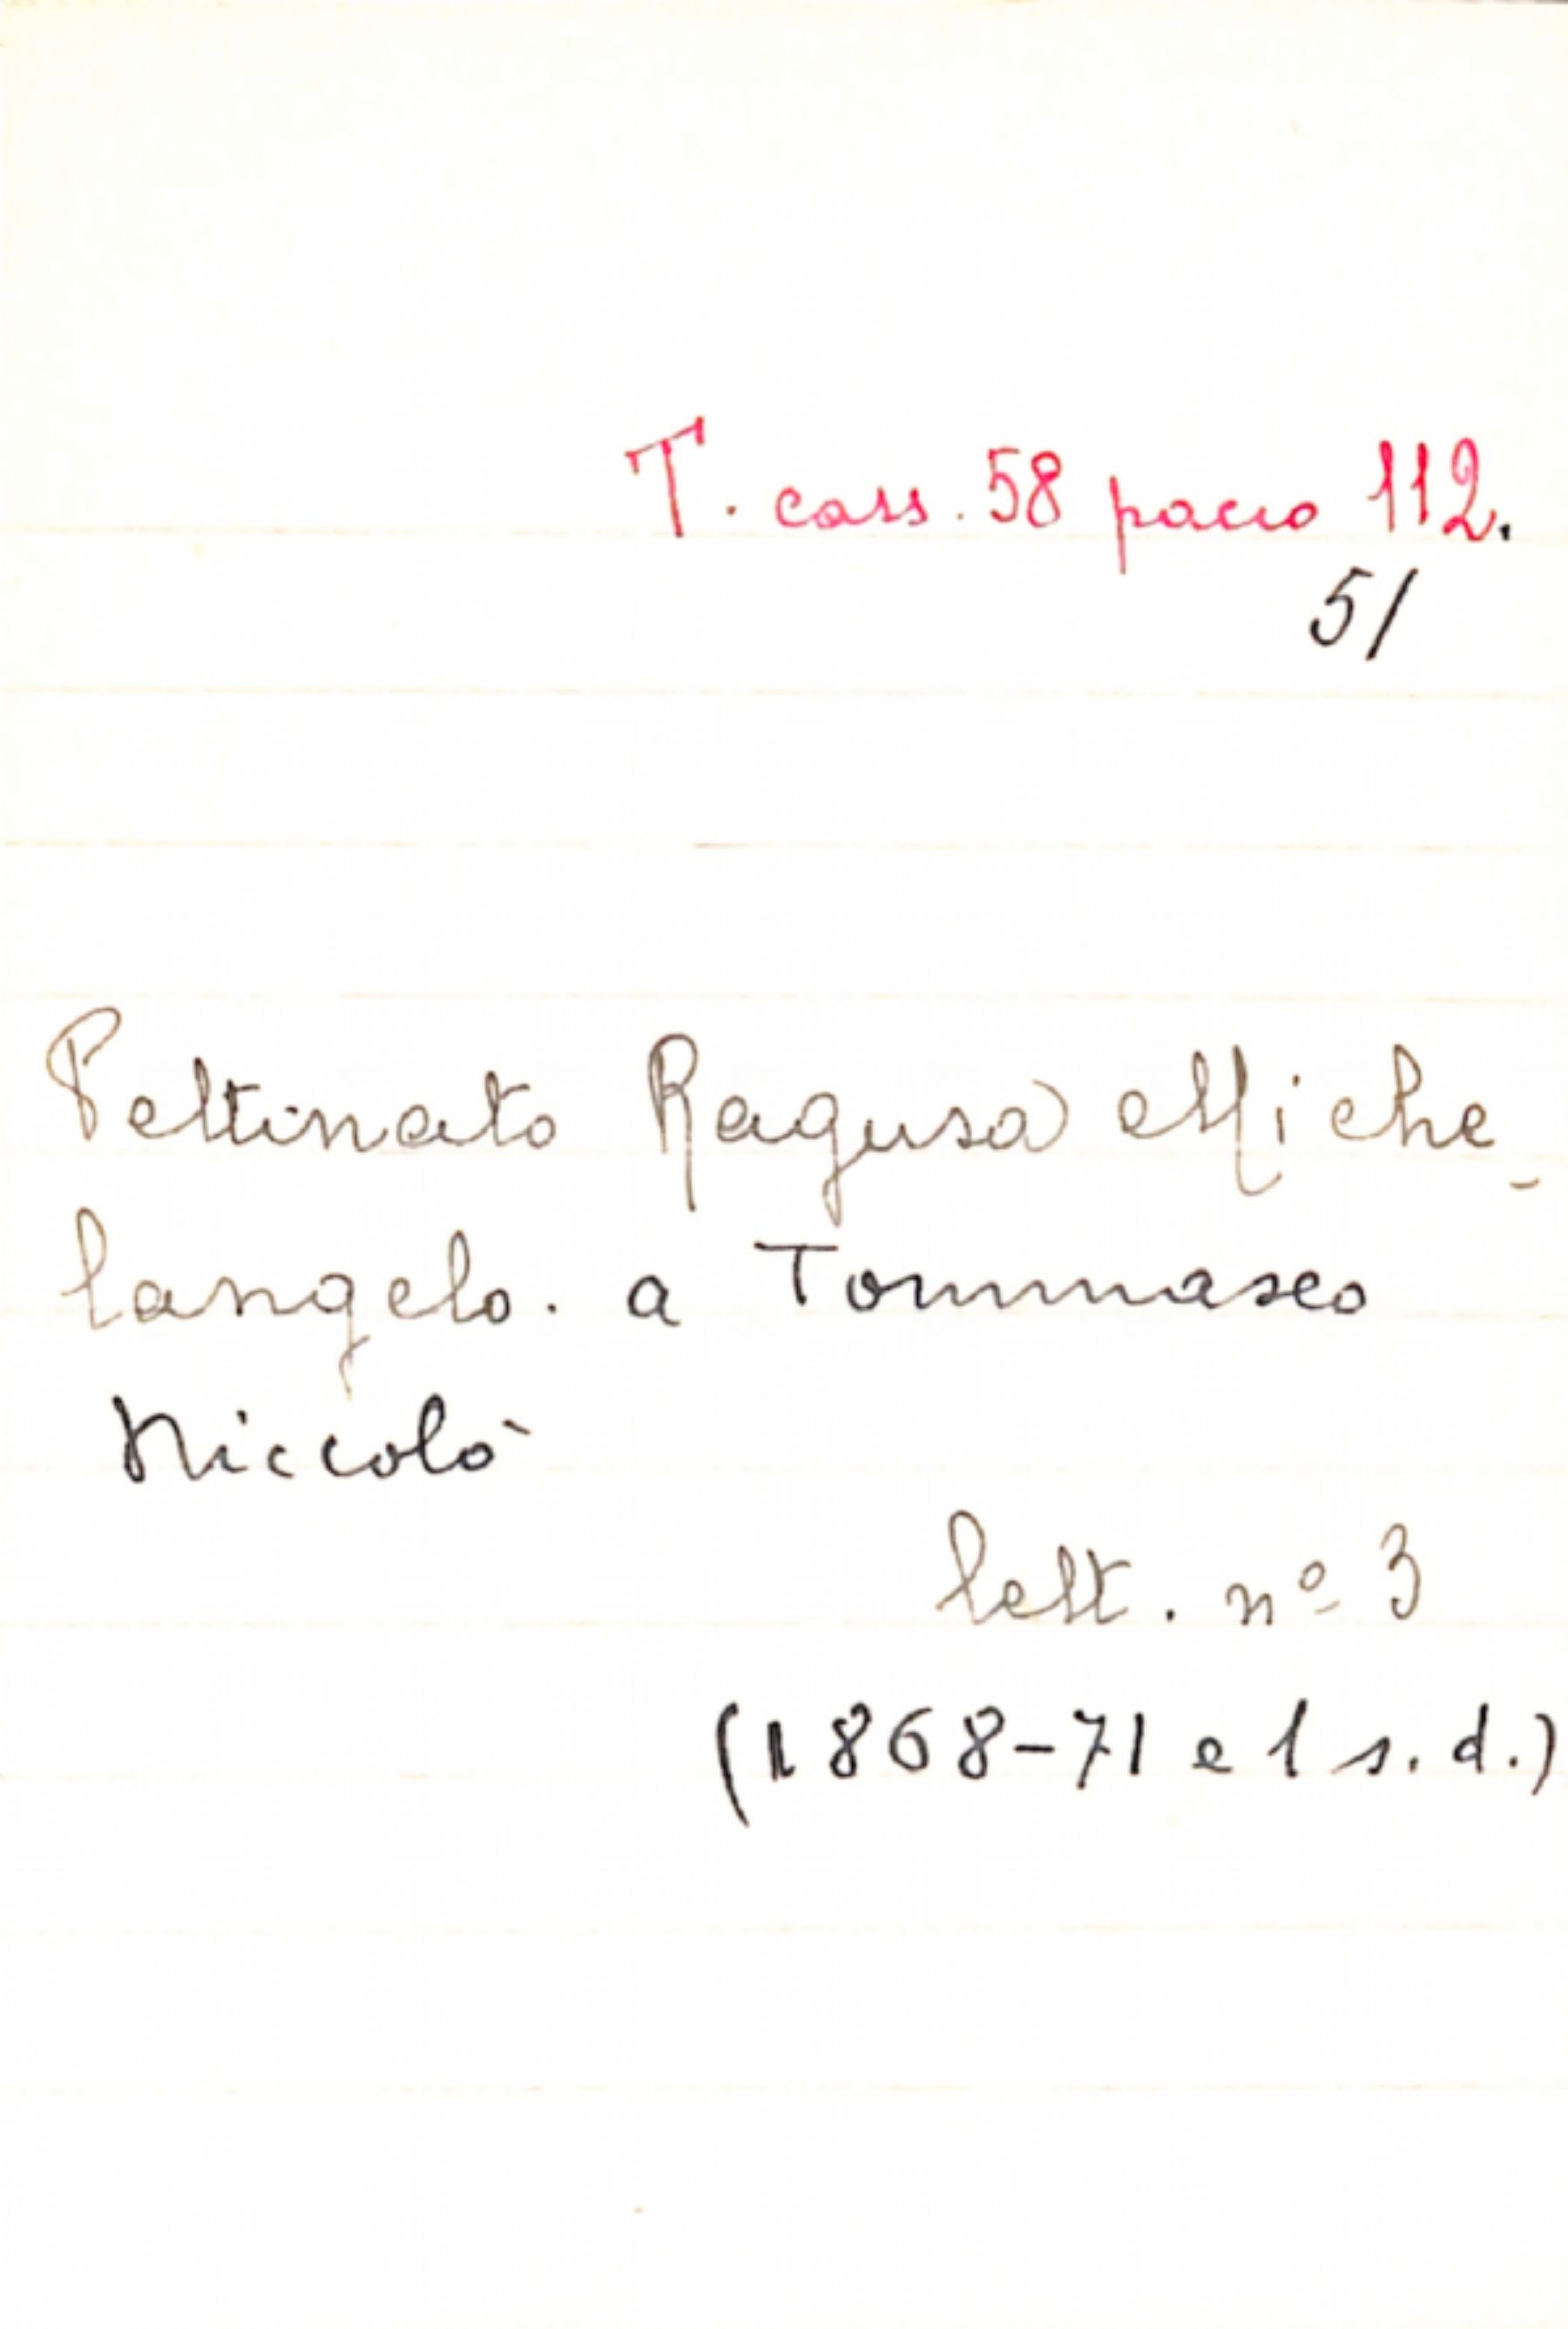 T. cass. 58 pacco 112.
5/
Pettinato Ragusa Miche-
langelo. a Tommaseo
Niccolò
lett. nº 3
(1868-71 e 1 s. d.)